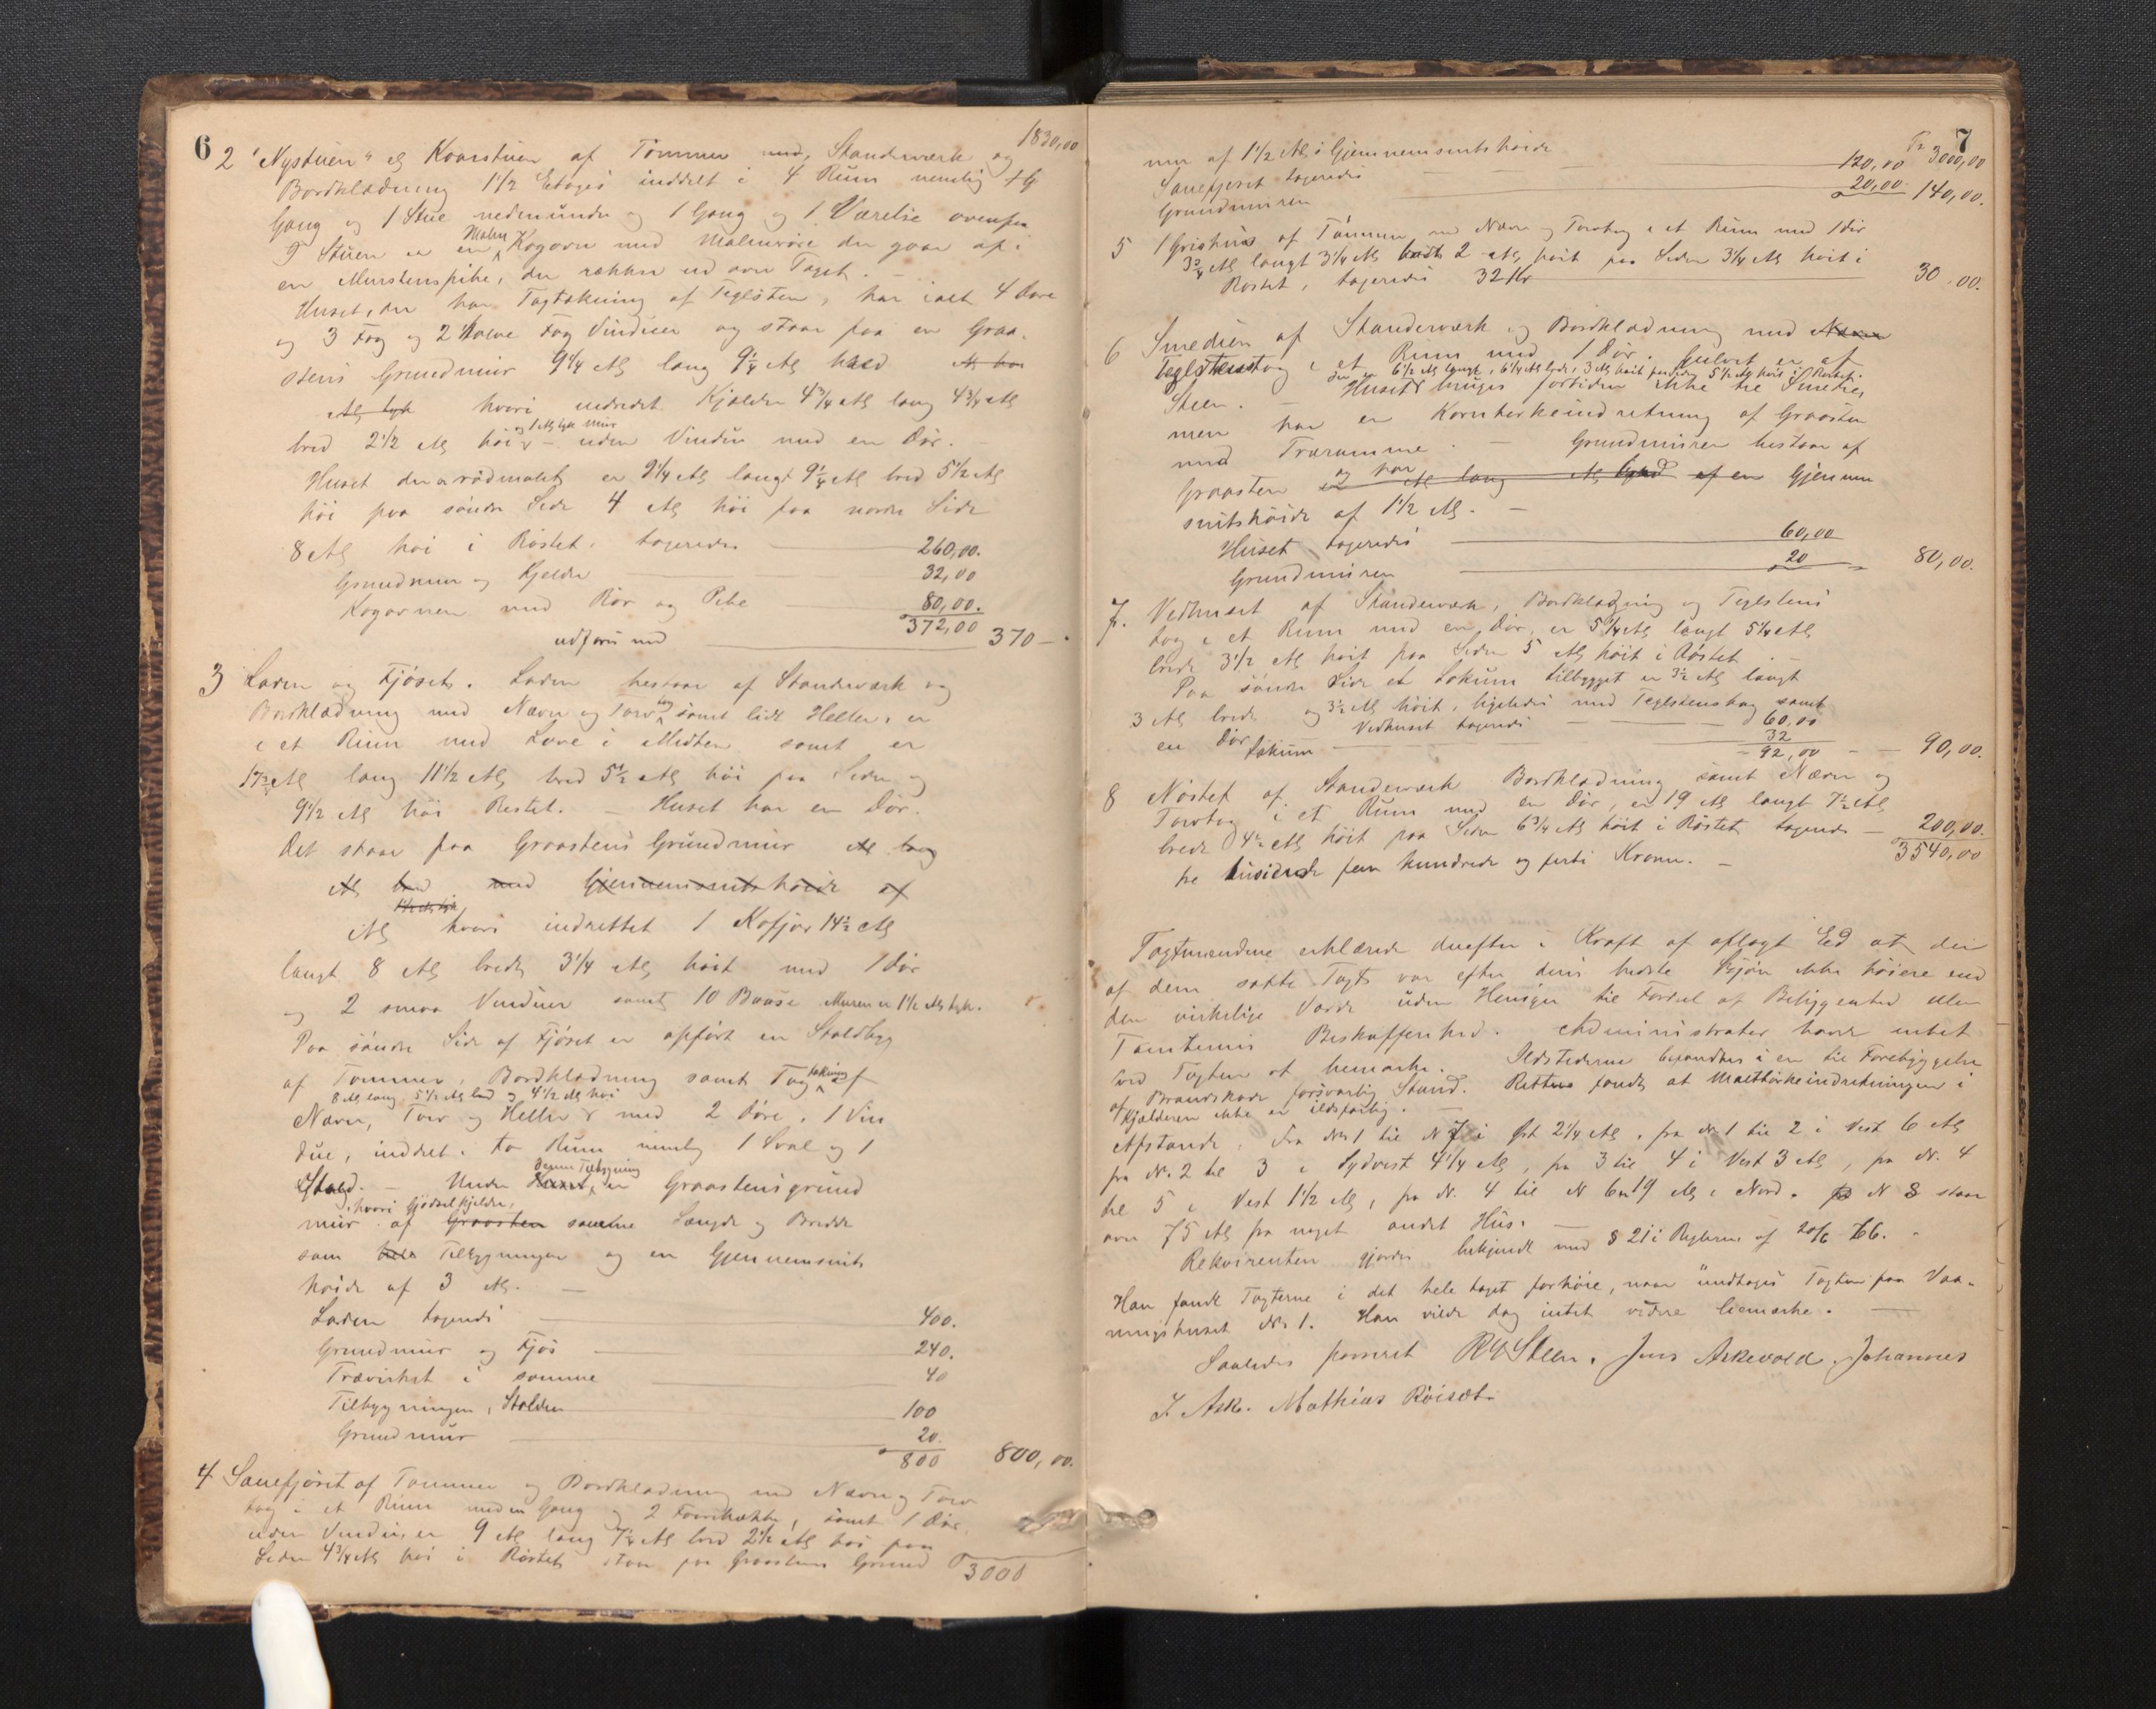 6
1830,00
2 "Nystuen" eg Kaarstuen af Tømmer med, Standværk og
Bordklædning 1 1/2 Etages inddelt i 4 Rum nemlig 1 G
Gang og 1 Stue nedenunder og 1 Gang og 1 Værelse ovenpaa
I Stuen er en Malm Kogovn med Malmrøre der gaar op i
en Murstenspibe, der rækker ud over Taget. -
Huset, der har Tagtækning af Teglsten, har ialt 4 Døre
og 3 Fag og 2 halve Fag Vinduer og staar paa en Graa-
stens Grundmur 9 1/4 Al lang 9 1/4 Al bred Al høi
Al tyk hvori indredet Kjælder 4 3/4 Al lang 4 3/4 Al
bred 2 1/2 Al høi og 1 Al tyk Mur - uden Vindu med en Dør. -
Huset der er rødmalet er 9 1/4 Al langt 9 1/4 Al bred 5 1/2 Al
høi paa søndre Side 4 Al høi paa nordre Side
8 Al høi i Røstet. tageredes 260,00.
Grundmur og Kjelder 32,00
Kogovnen med Rør og Pibe 80,00.
372,00
udføres med 370 -
3 Laden og Fjøset. Laden bestaar af Standværk og
Bordklædning med Næver og Torv tag samt lidt Heller, er
i et Rum med Love i Midten samt er
17 1/2 Al lang 11 1/2 Al bred 5 1/2 Al høi paa Siden og
9 1/2 Al høi Røstet. - Huset har en Dør.
Det staar paa Graastens Grundmur Al lang
Al bred med Gjennemsnitshøide af
1 1/2 Al tyk
Al hvori indrettet 1 Kofjøs 14 1/2 Al
langt 8 Al bredt 3 1/4 Al høit med 1 Dør
og 2 smaa Vinduer samt 10 Baase Muren er 1 1/2 Al tyk.
Paa søndre Side af Fjøset er opført en Staldbyg
af Tømmer, Bordklædning samt Tag tækning af
8 Al lang 5 1/2 Al bred og 4 1/2 Al høi
Næver, Torv og Heller med 2 Døre. 1 Vin
due, inddelt i to Rum nemlig 1 Sval og 1
Stald. - Under Huset denne Tilbygning er Graastensgrund
, hvori Gjødselkjelder,
mur af Graasten samme Længde og Bredde
som hele Tilbygningen og en Gjennemsnits
høide af 3 Al. -
Laden tageredes 400.
Grundmur og Fjøs 240.
Træværket i samme 40
Tilbygningen, Stalden 100
Grundmur 20.
800 800,00.
4 Sauefjøset af Tømmer og Bordklædning med Næver og Torv
tag i et Rum med en Gang og 2 Foerhække, samt 1 Dør
uden Vindu, er 9 Al lang 7 1/4 Al bred 2 1/2 Al høi paa
Siden 4 3/4 Al høi i Røstet staar paa Graastens Grund
3000
7
Tr 3000,00
mur af 1 1/2 Al i Gjennemsnitshøide
Sauefjøset tageredes 120,00
Grundmuren 20,00 140,00.
5 1 Grishus af Tømmer med Næver og Torvtag i et Rum med 1 Dør
3 3/4 Al langt 3 1/4 Al bredt 2 Al høit paa Siden 3 1/4 Al høit i
Røstet, tageredes 32 Kr 30,00.
6 Smedien af Standerværk og Bordklædning med Næver
Teglstenstag i et Rum med 1 Dør. Gulvet er af
der er 6 1/2 Al langt, 6 1/4 Al bredt, 3 Al høit paa Siden 5 1/2 Al høit i Røstet.
Steen. - Huset bruges fortiden ikke til Smedie,
men har en Korntørkeindretning af Graasten
med Træramme. - Grundmuren bestaar af
Graasten og har Al lang Al bred af en Gjennem
snitshøide af 1 1/2 Al. -
Huset tageredes 60,00
Grundmuren 20 80,00.
7. Vedhuset af Standerværk, Bordklædning og Teglstens
tag i et Rum med en Dør, er 5 1/4 Al langt 5 1/4 Al
bredt 3 1/2 Al høit paa Siden 5 Al høit i Røstet. -
Paa søndre Side et Lokum tilbygget er 3 1/2 Al langt
3 Al bredt og 3 1/2 Al høit, ligeledes med Teglstenstag samt
en Dør Vedhuset tageredes 60,00
Lokum 32
92,00 - - 90,00.
8 Nøstet af Standerværk Bordklædning samt Næver og
Torvtag i et Rum med en Dør, er 19 Al langt 7 1/2 Al
bredt 4 1/2 Al høit paa Siden 6 3/4 Al høit i Røstet tageredes - 200,00.
3540,00
tre tusinde fem hundrede og førti Kroner. -
Tagtmændene erklærede derefter i Kraft af aflagt Ed at den
af dem satte Tagt var efter deres bedste Skjøn ikke høiere end
den virkelige Værdi uden Hensyn til Fordel af Beliggenhed eller
Tomtens Beskaffenhed. Administrator havde intet
ved Tagten at bemærke. Ildstederne befandtes i en til Forebyggelse
af Brandskade forsvarlig Stand. Retten fandt at Malttørkeindretningen i
Kjælderen ikke er ildsfarlig. -
Afstande. Fra No 1 til N 7 i Øst 2 1/4 Al, fra No 1 til 2 i Vest 6 Al
fra No. 2 til 3 i Sydvest 4 1/4 Al, fra 3 til 4 i Vest 3 Al, fra No. 4
til 5 i Vest 1 1/2 Al, fra No. 4 til N 6 19 Al i Nord. N 8 staar
over 75 Al fra noget andet Hus. -
Rekvirenten gjordes bekjendt med § 21 i Reglerne af 20/6 - 66. -
Han fandt Tagterne i det hele taget for høie, naar undtages Tagten paa Vaa-
ningshuset No 1. Han vilde dog intet videre bemærke. -
Saaledes passeret R Steen. Jens Askevold. Johannes
J. Ask. Mathias Røiset.